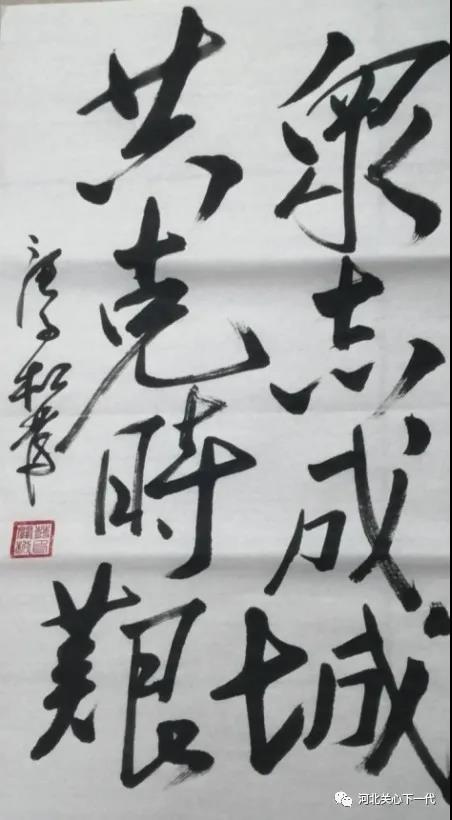 眾志成城
共克時艱
河北关心下一代